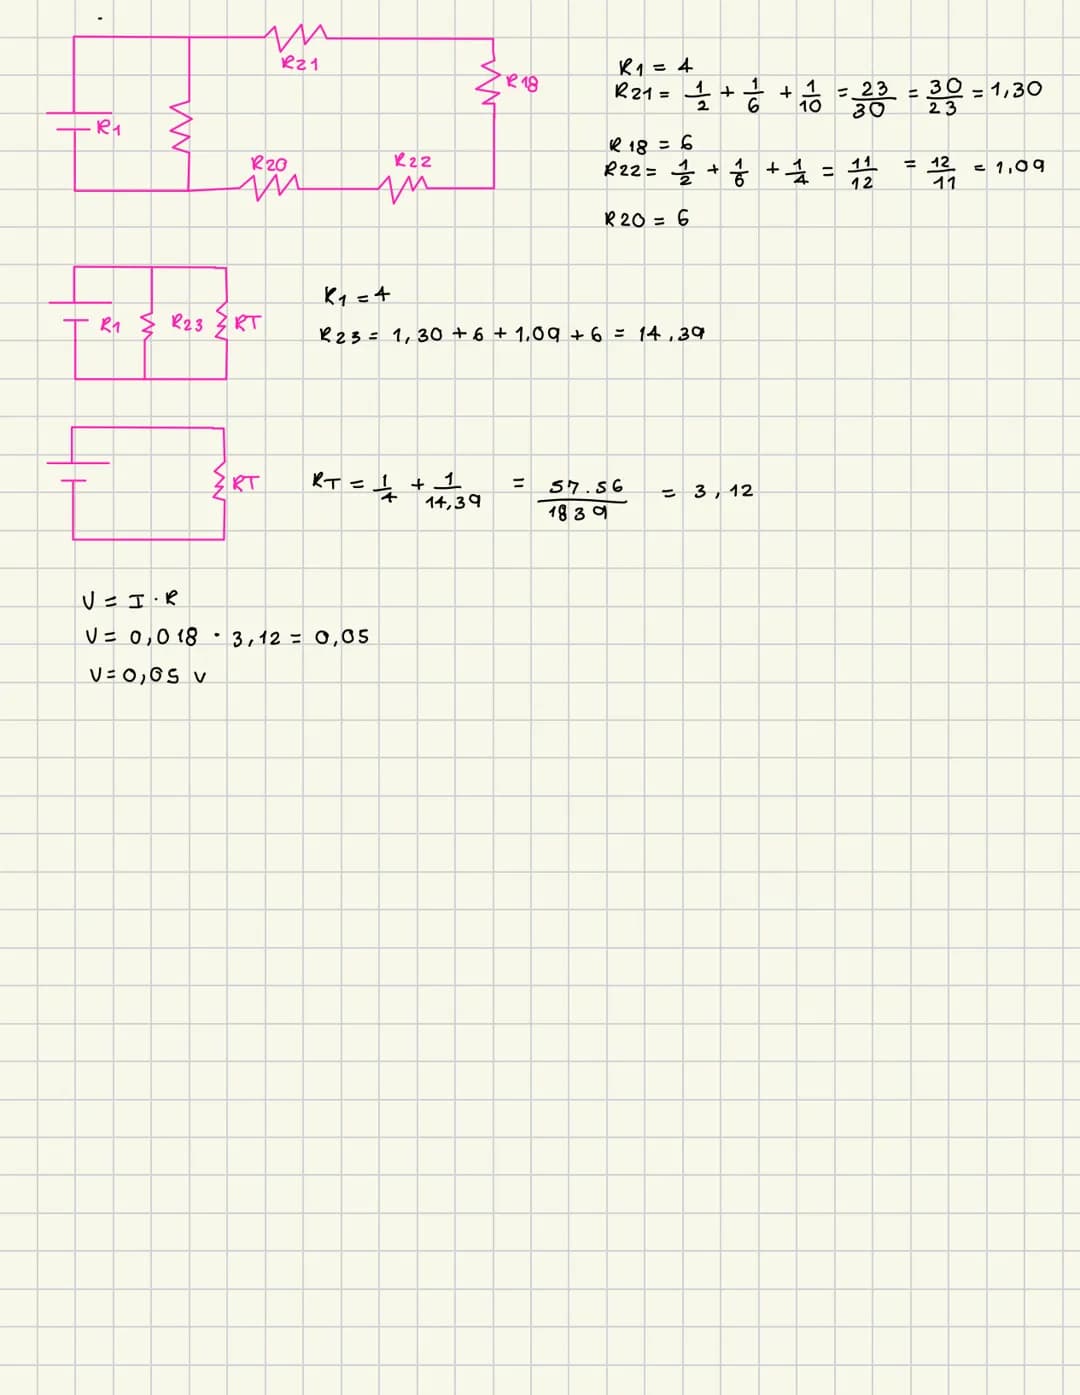 R21
R18
R1
R20
R22
R1 = 4
R21 = 1/2 + 1/6 + 1/10 = 23/30 = 30/23 = 1,30
R18 = 6
R22 = 1/2 + 1/6 + 1/4 = 11/12 = 12/11 = 1,09
R20 = 6
R1 R23 RT
R1 = 4
R23 = 1,30 + 6 + 1,09 + 6 = 14,39
RT
RT = 1/4 + 1/14,39 = 57.56/1839 = 3,12
V = I · R
V = 0,018 · 3,12 = 0,05
V = 0,05 v